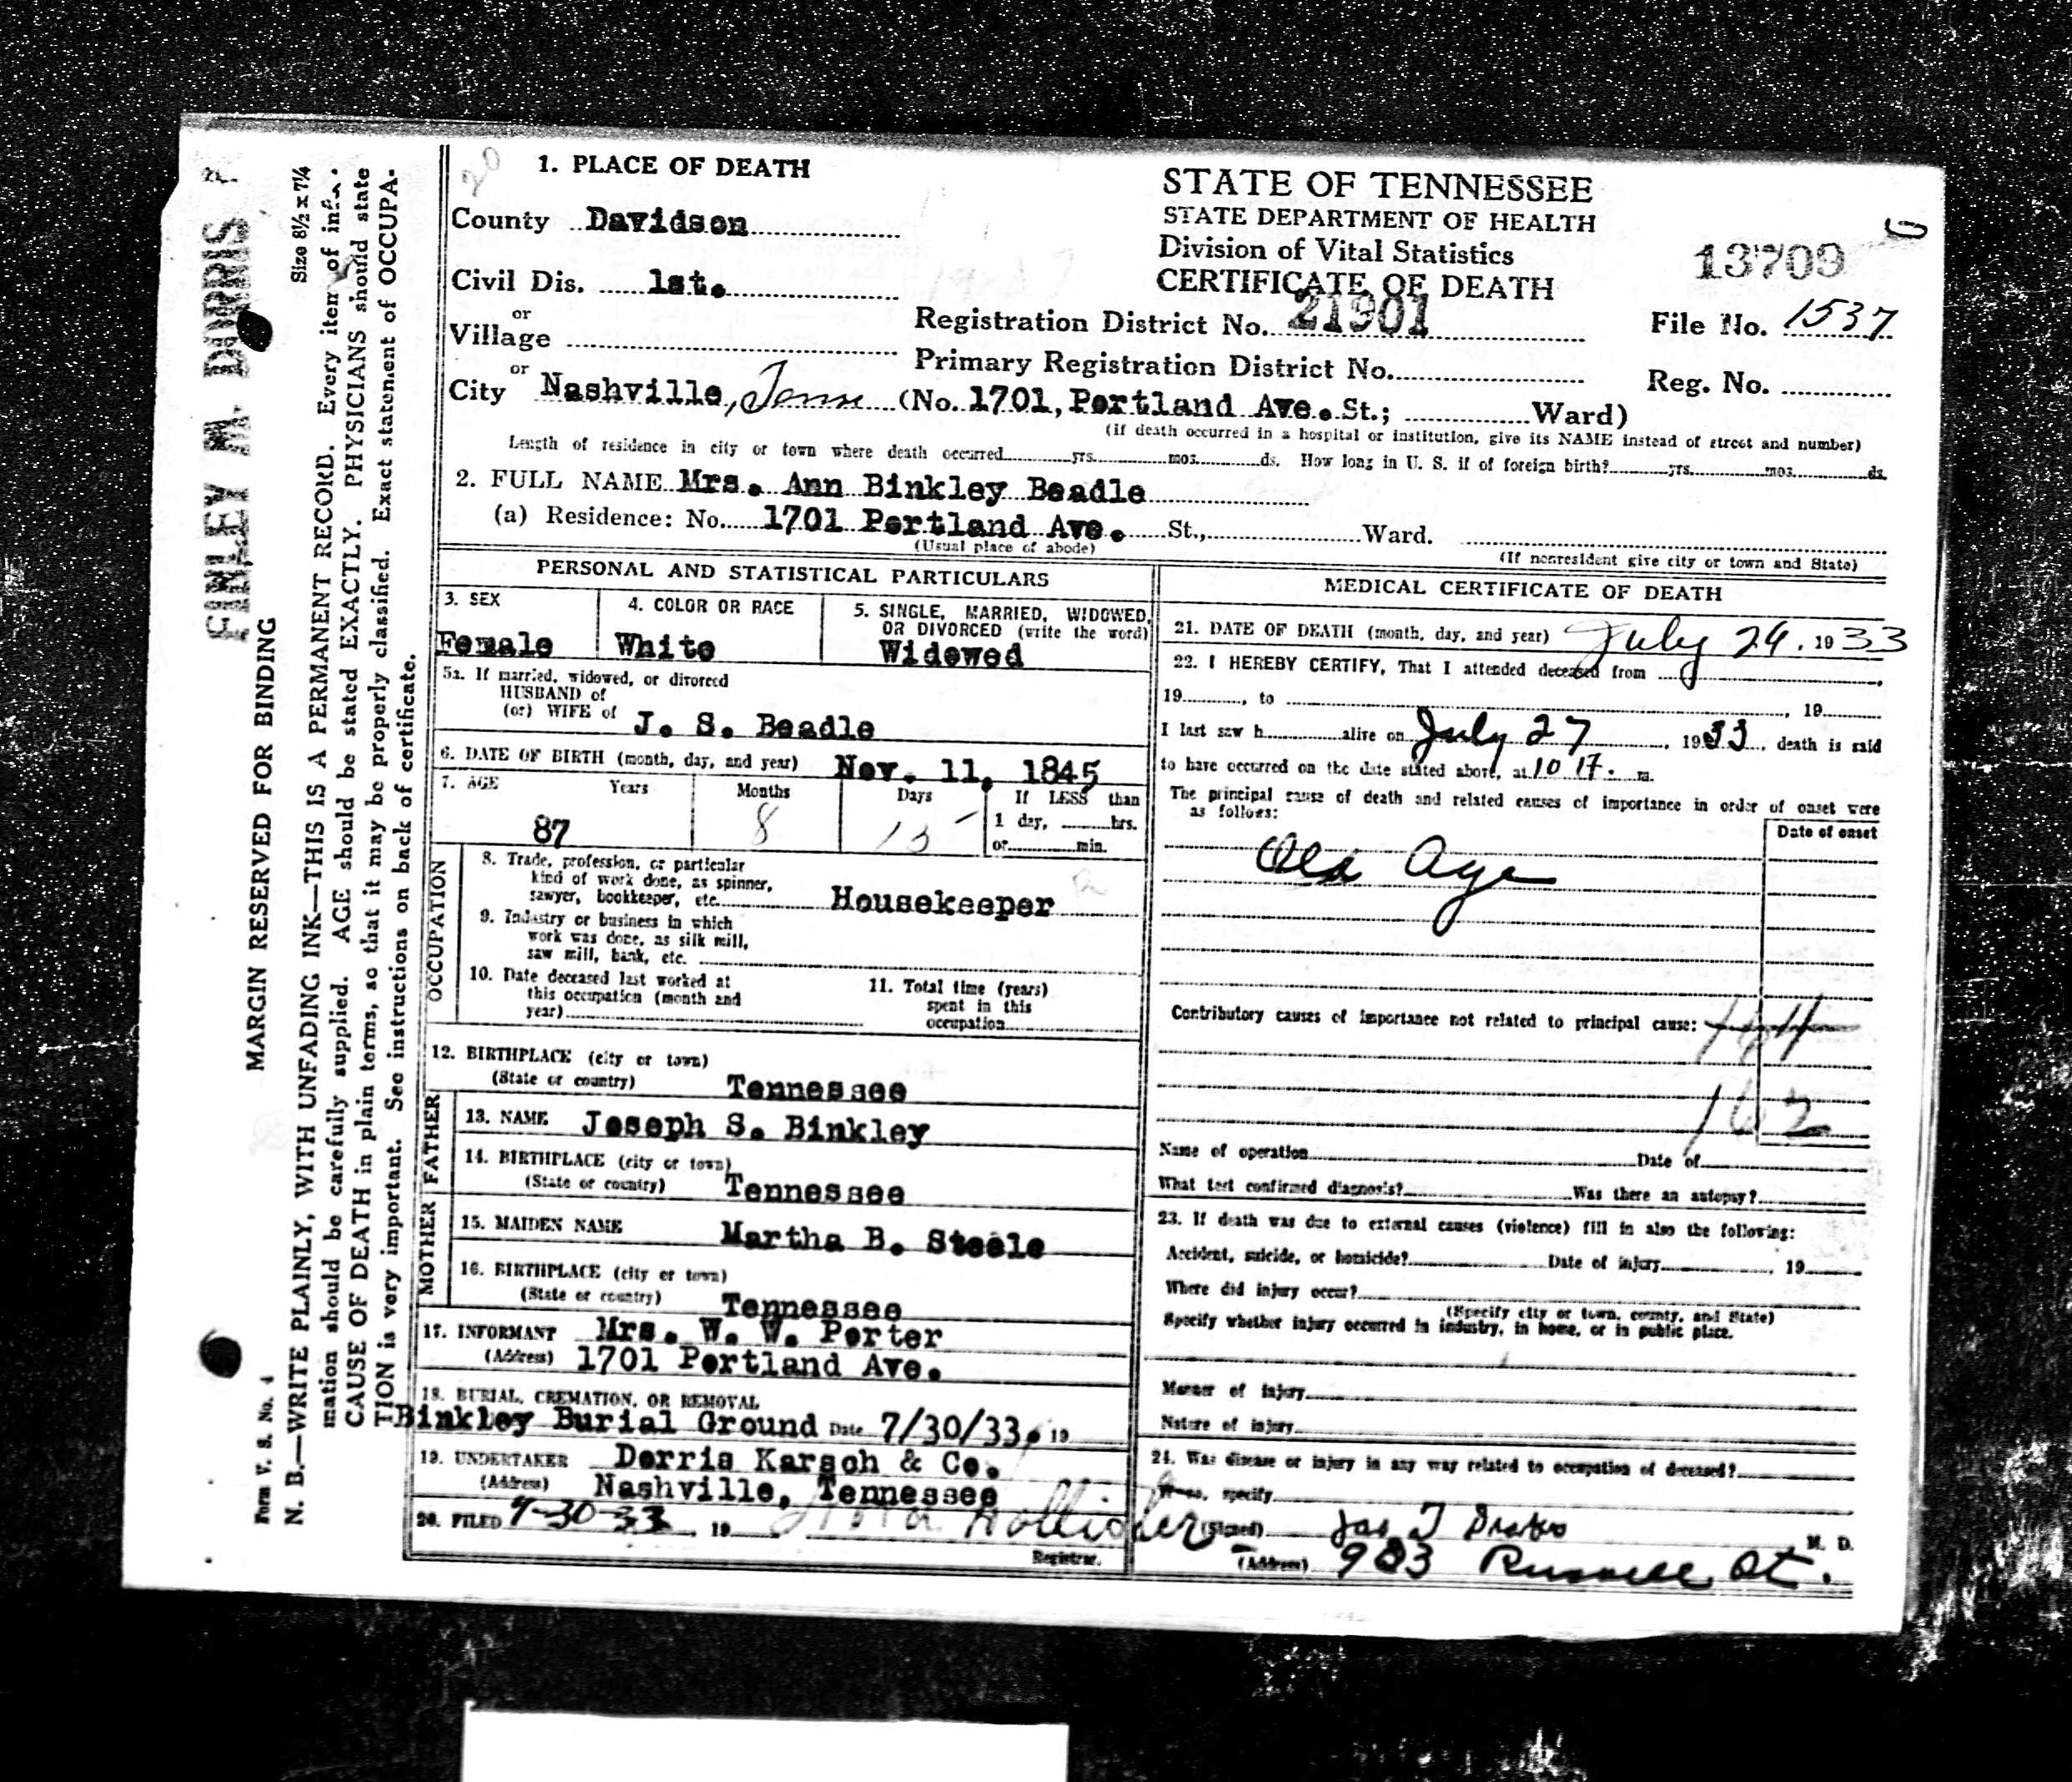 FINLEY M. DORRIS
MARGIN RESERVED FOR BINDING
Size 8½ x 7¼
N. B.—WRITE PLAINLY, WITH UNFADING INK—THIS IS A PERMANENT RECORD. Every item of infor-
mation should be carefully supplied. AGE should be stated EXACTLY. PHYSICIANS should state
CAUSE OF DEATH in plain terms, so that it may be properly classified. Exact statement of OCCUPA-
TION is very important. See instructions on back of certificate.
Form V. S. No. 4
20
1. PLACE OF DEATH
County Davidson
Civil Dis. 1st.
or
Village
or
City Nashville, Tenn (No. 1701, Portland Ave. St.; Ward)
STATE OF TENNESSEE
STATE DEPARTMENT OF HEALTH
Division of Vital Statistics
CERTIFICATE OF DEATH
13709
Registration District No. 21901
File No. 1537
Primary Registration District No.
Reg. No.
(If death occurred in a hospital or institution, give its NAME instead of street and number)
Length of residence in city or town where death occurred yrs. mos. ds. How long in U. S. if of foreign birth? yrs. mos. ds.
2. FULL NAME Mrs. Ann Binkley Beadle
(a) Residence: No. 1701 Portland Ave. St., Ward.
(Usual place of abode)
(If nonresident give city or town and State)
PERSONAL AND STATISTICAL PARTICULARS
3. SEX
Female
4. COLOR OR RACE
White
5. SINGLE, MARRIED, WIDOWED,
OR DIVORCED (write the word)
Widowed
5a. If married, widowed, or divorced
HUSBAND of
(or) WIFE of J. S. Beadle
6. DATE OF BIRTH (month, day, and year) Nov. 11, 1845
7. AGE Years Months Days If LESS than
1 day, hrs.
87 8 15 or min.
OCCUPATION
8. Trade, profession, or particular
kind of work done, as spinner,
sawyer, bookkeeper, etc. Housekeeper
9. Industry or business in which
work was done, as silk mill,
saw mill, bank, etc.
10. Date deceased last worked at
this occupation (month and
year)
11. Total time (years)
spent in this
occupation
12. BIRTHPLACE (city or town)
(State or country) Tennessee
FATHER
13. NAME Joseph S. Binkley
14. BIRTHPLACE (city or town)
(State or country) Tennessee
MOTHER
15. MAIDEN NAME Martha B. Steele
16. BIRTHPLACE (city or town)
(State or country) Tennessee
17. INFORMANT Mrs. W. W. Porter
(Address) 1701 Portland Ave.
18. BURIAL, CREMATION, OR REMOVAL
Binkley Burial Ground Date 7/30/33. 19
19. UNDERTAKER Dorris Karsch & Co.
(Address) Nashville, Tennessee
20. FILED 7-30-33, 19 Hollister
Registrar.
MEDICAL CERTIFICATE OF DEATH
21. DATE OF DEATH (month, day, and year) July 26, 1933
22. I HEREBY CERTIFY, That I attended deceased from
19 , to , 19
I last saw h alive on July 27, 1933, death is said
to have occurred on the date stated above, at 10 17. m.
The principal cause of death and related causes of importance in order of onset were
as follows:
Date of onset
Old Age
Contributory causes of importance not related to principal cause:
164
162
Name of operation Date of
What test confirmed diagnosis? Was there an autopsy?
23. If death was due to external causes (violence) fill in also the following:
Accident, suicide, or homicide? Date of injury , 19
Where did injury occur?
(Specify city or town, county, and State)
Specify whether injury occurred in industry, in home, or in public place.
Manner of injury
Nature of injury
24. Was disease or injury in any way related to occupation of deceased?
If so, specify
(Signed) Jas T Drake M. D.
(Address) 933 Russell St.